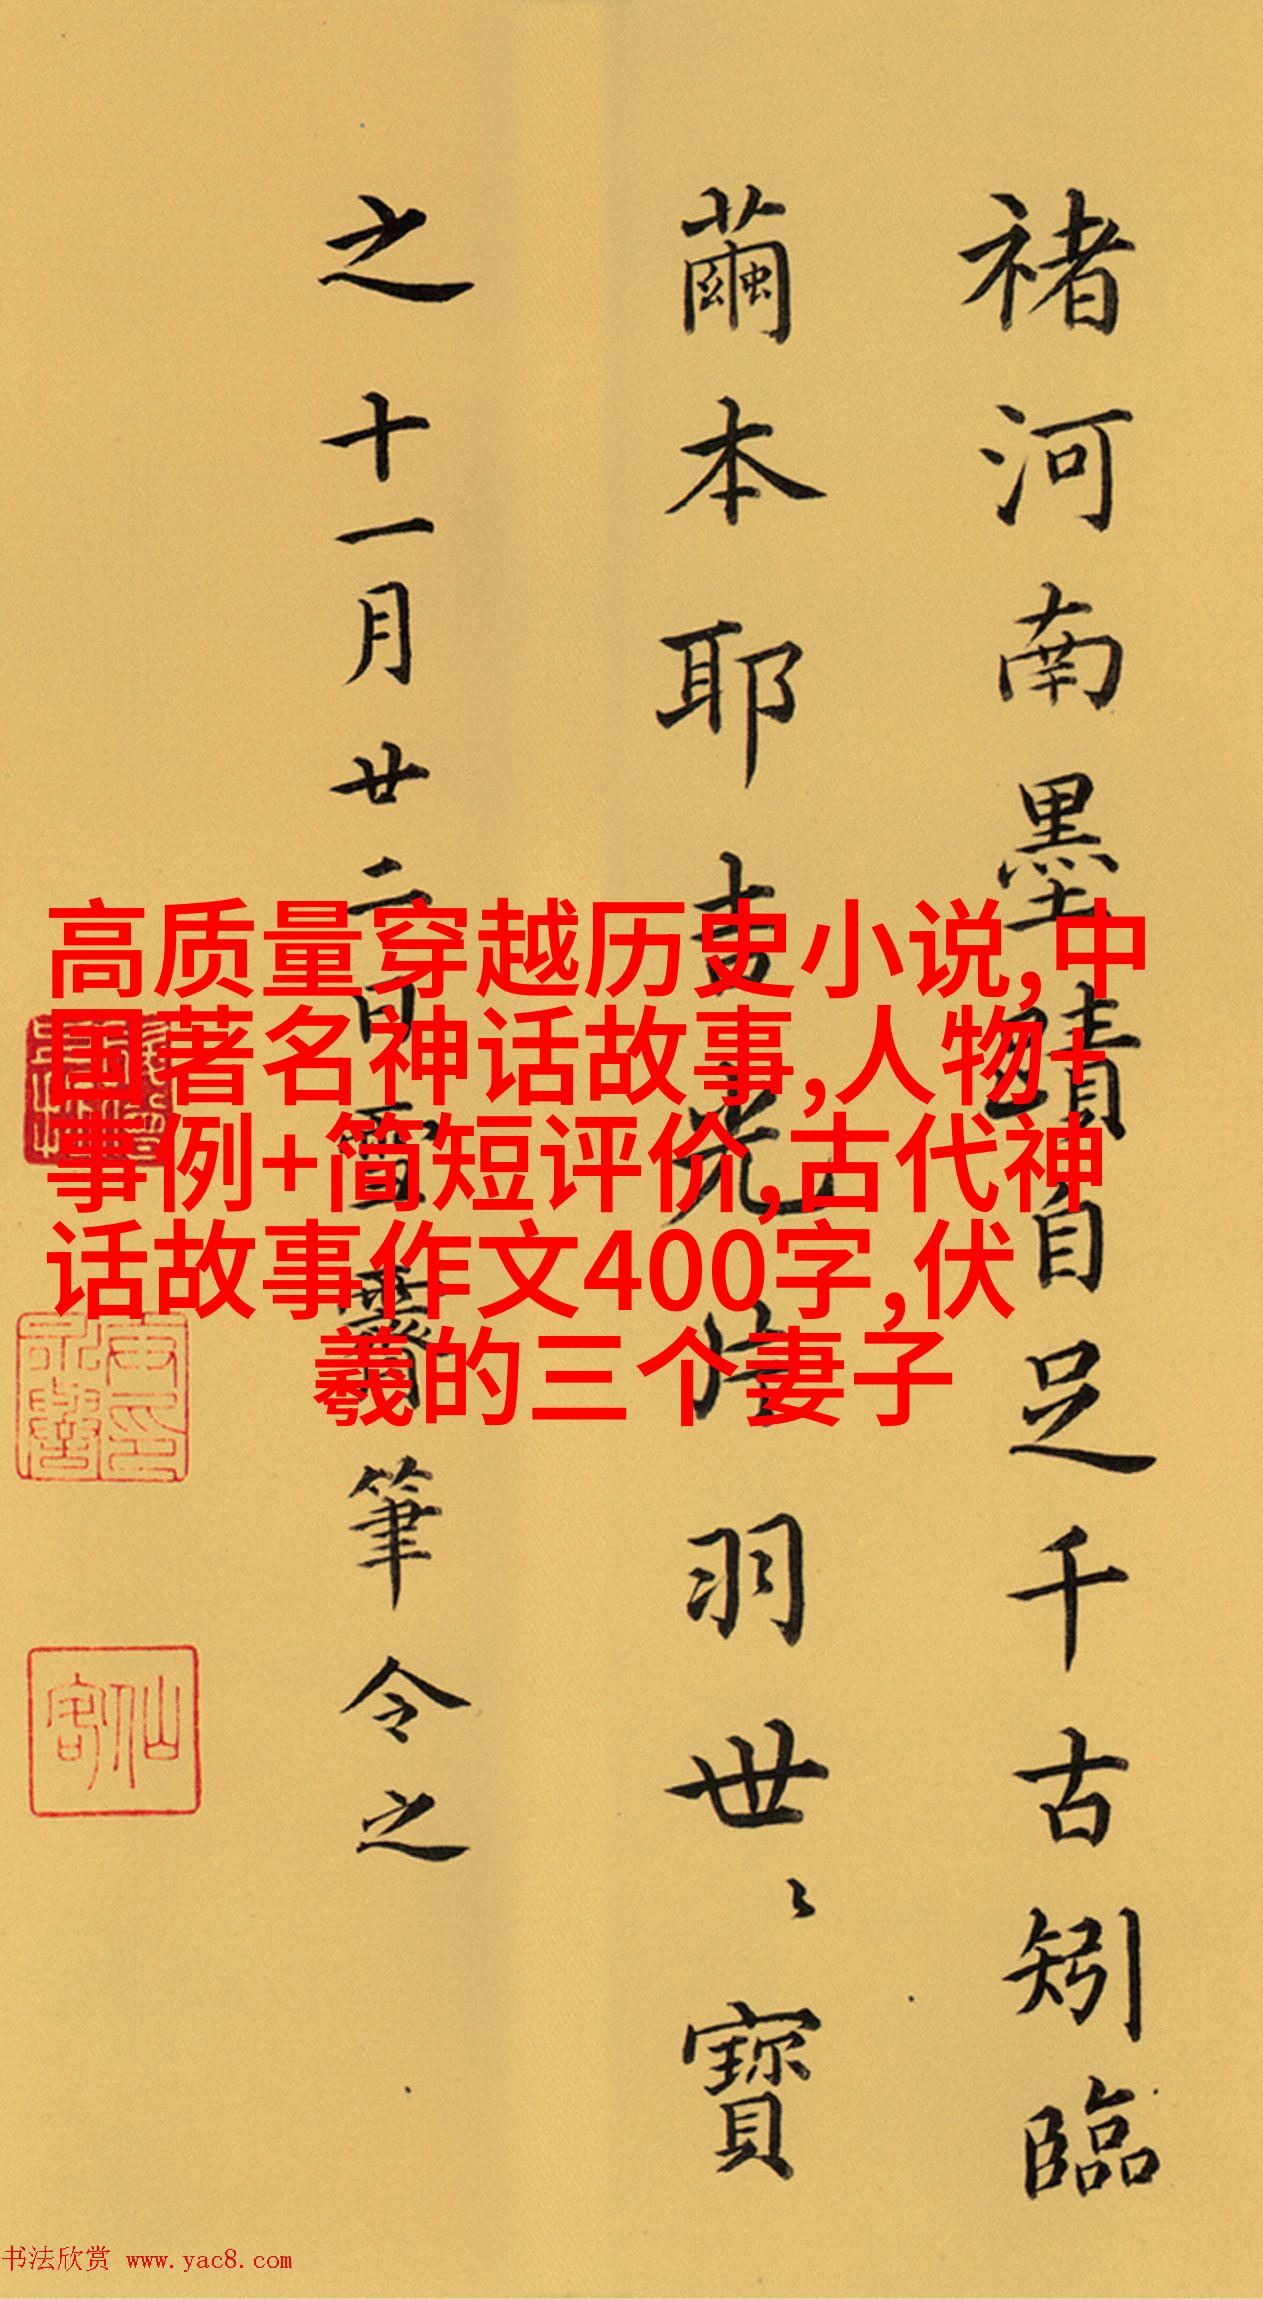 褚河南墨蹟自足千古矧臨
繭本耶吉光片羽世〻寶
之十一月廿二日雪霽筆令之
高质量穿越历史小说,中
国著名神话故事,人物+
事例+简短评价,古代神
话故事作文400字,伏
羲的三个妻子
仙客
书法欣赏 www.yac8.com